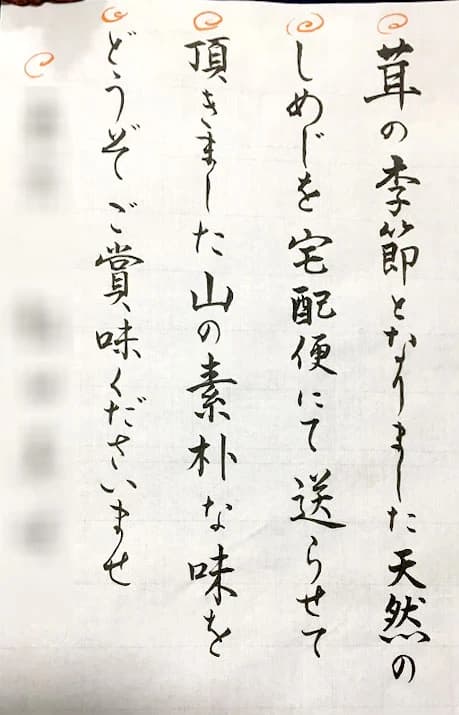 茸の季節となりました天然の
しめじを宅配便にて送らせて
頂きました山の素朴な味を
どうぞご賞味くださいませ